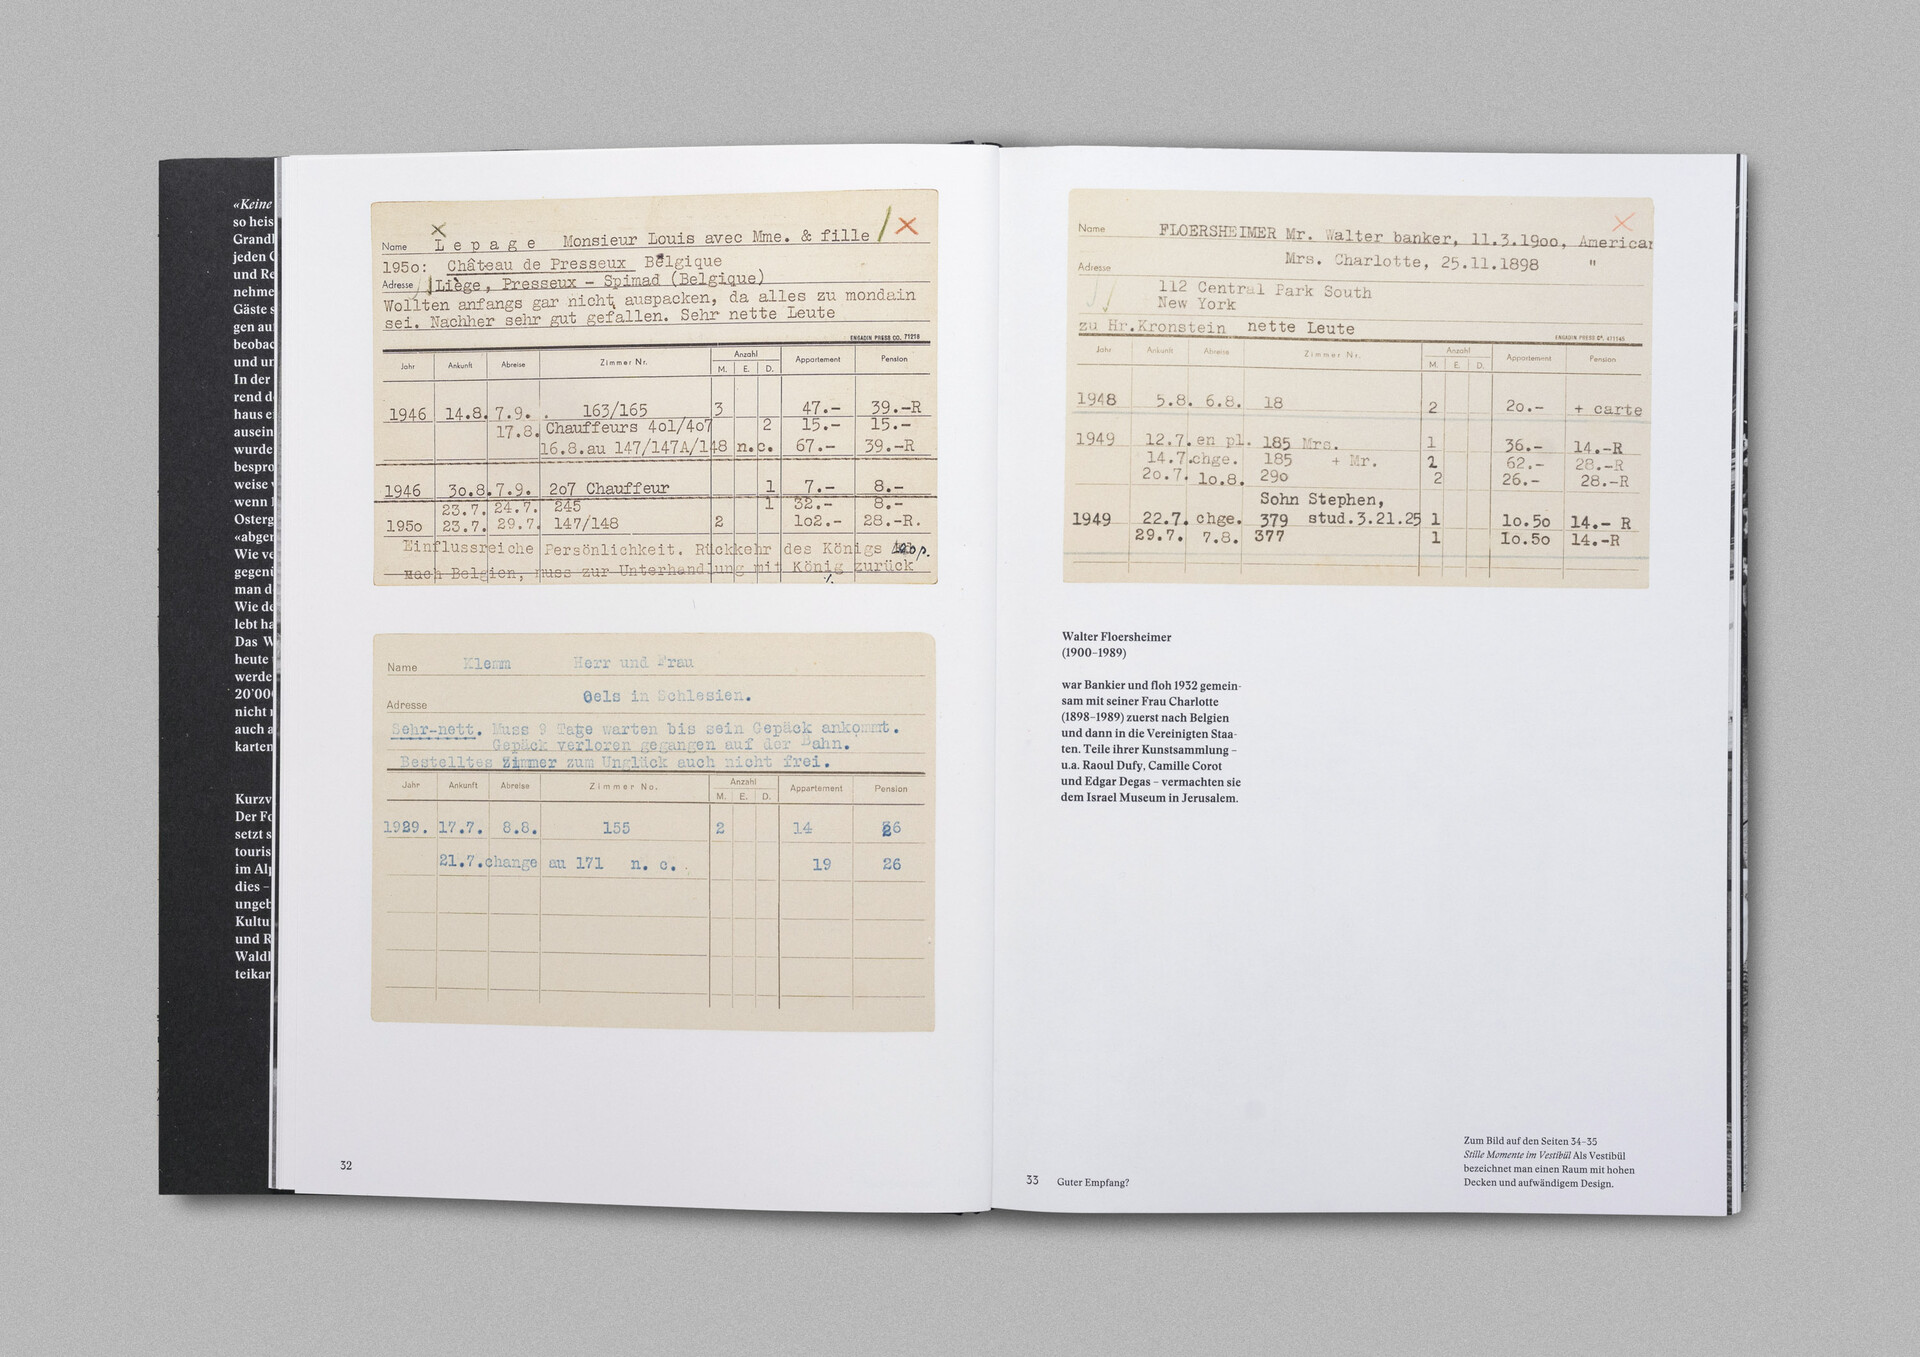 «Keine
so heis
Grandl
jeden G
und Re
nehme
Gäste s
gen au
beobac
und un
In der
rend d
haus e
ausein
wurde
bespro
weise
wenn
Osterg
«abger
Wie ve
gegenü
man d
Wie de
lebt ha
Das W
heute
werde
20'000
nicht
auch a
karten
Kurzv
Der Fo
setzt s
touris
im Alp
dies –
ungeb
Kultu
und R
Waldh
teikar
Name Lepage Monsieur Louis avec Mme. & fille
1950: Château de Presseux Belgique
Adresse Liège, Presseux - Spimad (Belgique)
Wollten anfangs gar nicht auspacken, da alles zu mondain
sei. Nachher sehr gut gefallen. Sehr nette Leute
ENGADIN PRESS CO. 71218
Jahr Ankunft Abreise Zimmer Nr. Anzahl Appartement Pension
M. E. D.
1946 14.8. 7.9. . 163/165 3 47.- 39.-R
17.8. Chauffeurs 401/407 2 15.- 15.-
16.8.au 147/147A/148 n.c. 67.- 39.-R
1946 30.8. 7.9. 207 Chauffeur 1 7.- 8.-
23.7. 24.7. 245 1 32.- 8.-
1950 23.7. 29.7. 147/148 2 102.- 28.-R.
Einflussreiche Persönlichkeit. Rückkehr des Königs
nach Belgien, muss zur Unterhandlung mit König zurück
Name Klemm Herr und Frau
Oels in Schlesien.
Adresse
Sehr-nett. Muss 9 Tage warten bis sein Gepäck ankommt.
Gepäck verloren gegangen auf der Bahn.
Bestelltes Zimmer zum Unglück auch nicht frei.
Jahr Ankunft Abreise Zimmer No. Anzahl Appartement Pension
M. E. D.
1929. 17.7. 8.8. 155 2 14 26
21.7.change au 171 n. c. 19 26
32
Name FLOERSHEIMER Mr. Walter banker, 11.3.1900, American
Mrs. Charlotte, 25.11.1898 "
Adresse
112 Central Park South
New York
zu Hr.Kronstein nette Leute
ENGADIN PRESS Co. 471145
Jahr Ankunft Abreise Zimmer Nr. Anzahl Appartement Pension
M. E. D.
1948 5.8. 6.8. 18 2 20.- + carte
1949 12.7. en pl. 185 Mrs. 1 36.- 14.-R
14.7.chge. 185 + Mr. 2 62.- 28.-R
20.7. 10.8. 290 2 26.- 28.-R
Sohn Stephen,
1949 22.7. chge. 379 stud.3.21.25 1 10.50 14.- R
29.7. 7.8. 377 1 10.50 14.-R
Walter Floersheimer
(1900–1989)
war Bankier und floh 1932 gemein-
sam mit seiner Frau Charlotte
(1898–1989) zuerst nach Belgien
und dann in die Vereinigten Staa-
ten. Teile ihrer Kunstsammlung –
u.a. Raoul Dufy, Camille Corot
und Edgar Degas – vermachten sie
dem Israel Museum in Jerusalem.
Zum Bild auf den Seiten 34–35
Stille Momente im Vestibül Als Vestibül
bezeichnet man einen Raum mit hohen
Decken und aufwändigem Design.
33 Guter Empfang?